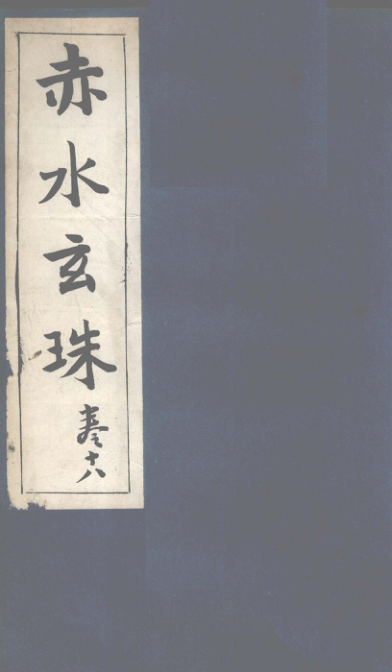 赤水玄珠
卷十八